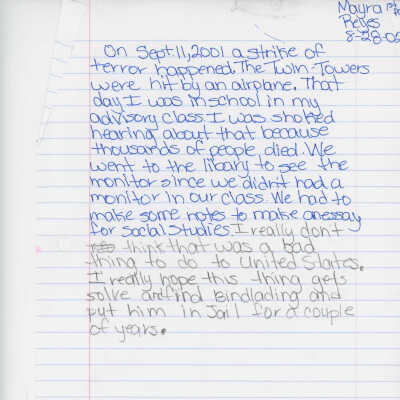 Mayra
Reyes
8-28-02
On Sept 11, 2001 a strike of
terror happened. The Twin-Towers
were hit by an airplane. That
day I was in school in my
advisory class. I was shoked
hearing about that because
thousands of people died. We
went to the libary to see the
monitor since we didn't had a
monitor in our class. We had to
make some notes to make an essay
for social studies. I really don't
think that was a bad
thing to do to United States.
I really hope this thing gets
solve and find bindlading and
put him in Jail for a couple
of years.